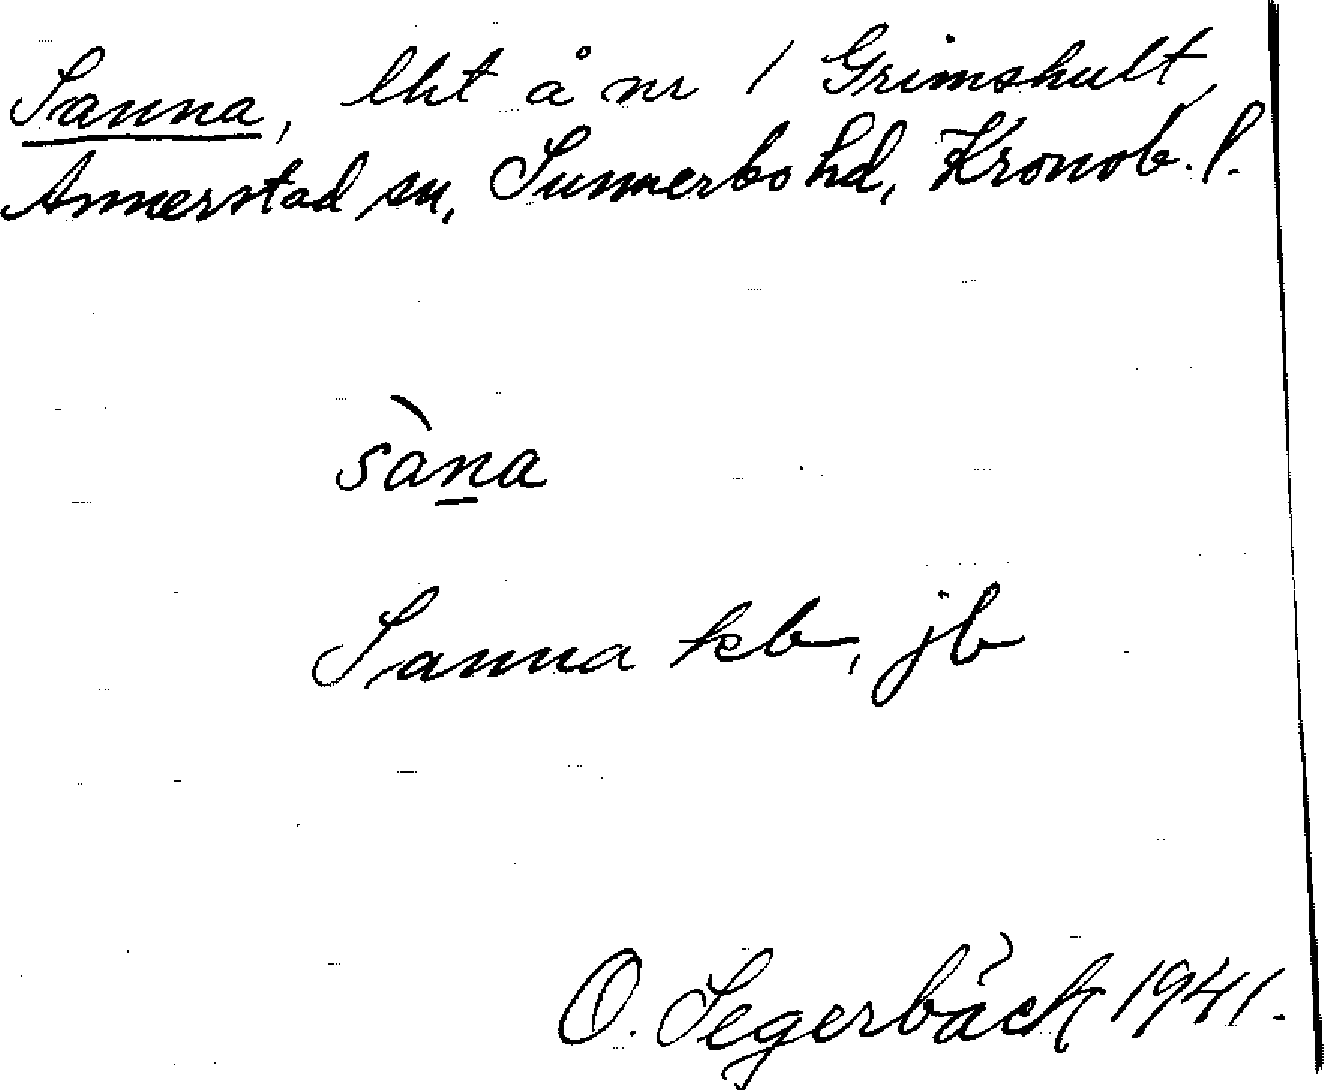 Sanna, lht å nr 1 Grimshult,
Annerstad sn, Sunnerbo hd, Kronob. l.
sàṉa
Sanna kb, jb
O. Segerbäck 1941.